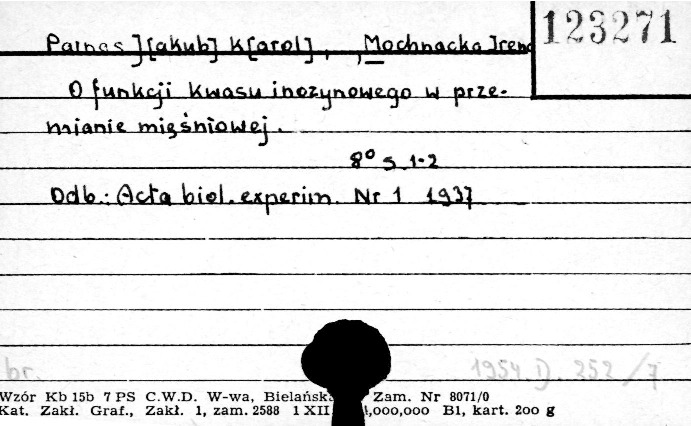 123271
Parnas J[akub] K[arol], , Mochnacka Irena
O funkcji kwasu inozynowego w prze-
mianie mięśniowej.
8° s. 1-2
Odb.: Acta biol. experim. Nr 1 1937
br. 1954.D. 252/7
Wzór Kb 15b 7 PS C.W.D. W-wa, Bielańska Zam. Nr 8071/0
Kat. Zakł. Graf., Zakł. 1, zam. 2588 1 XII ,000,000 B1, kart. 200 g